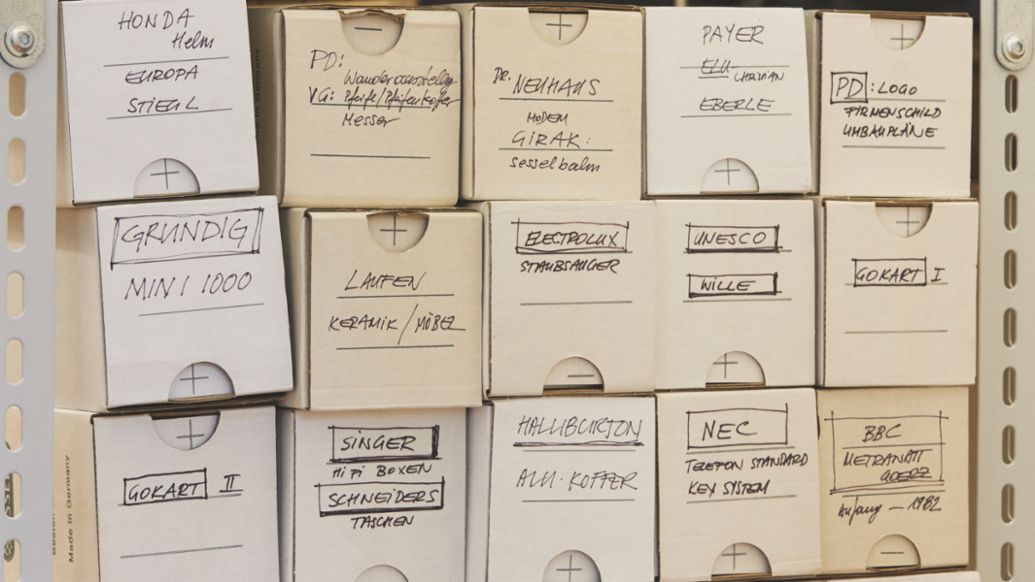 HONDA
Helm
EUROPA
STIEGL
PD:
VG: Pfeife/Pfeifenkoffer
Messer
DR. NEUHAUS
MODEM
GIRAK:
Sesselbahn
PAYER
ELU - CHRISTIAN
EBERLE
PD : LOGO
FIRMENSCHILD
UMBAUPLÄNE
GRUNDIG
MINI 1000
LAUFEN
KERAMIK / MÖBEL
ELECTROLUX
STAUBSAUGER
UNESCO
WILLE
GOKART I
GOKART II
SINGER
HiFi BOXEN
SCHNEIDERS
TASCHEN
HALLIBURTON
ALU-KOFFER
NEC
TELEFON STANDARD
KEY SYSTEM
BBC
METRAWATT
GOERZ
Anfang — 1982
Made in Germany